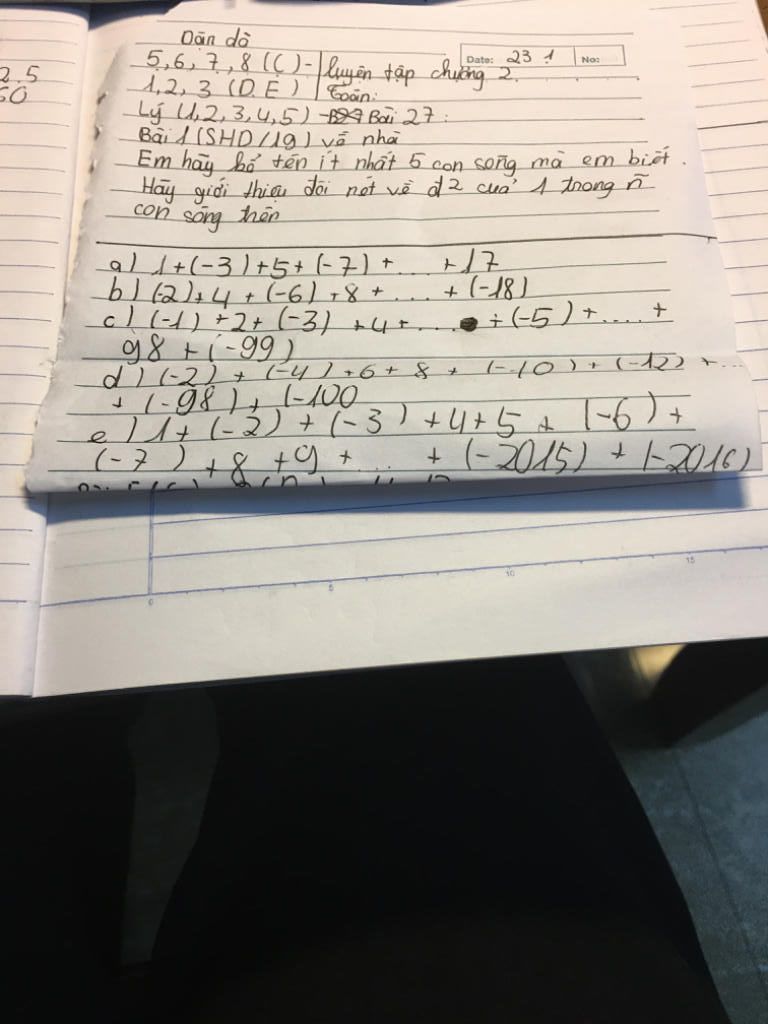 2.5
50
Dặn dò
Date: 23.1 No:
5, 6, 7, 8 (C) - luyện tập chương 2.
1, 2, 3 (D.E) Toán:
Lý (1,2,3,4,5) - Bài 27:
Bài 1 (SHD/19) về nhà
Em hãy kể tên ít nhất 5 con sông mà em biết.
Hãy giới thiệu đôi nét về đ2 của 1 trong n~
con sông trên
a) 1+(-3)+5+(-7)+....+17
b) (-2)+4+(-6)+8+....+(-18)
c) (-1)+2+(-3)+4+....+(-5)+....+
98+(-99)
d) (-2)+(-4)+6+8+(-10)+(-12)+...
+(-98)+(-100
e) 1+(-2)+(-3)+4+5+(-6)+
(-7)+8+9+...+(-2015)+(-2016)
0 5 10 15